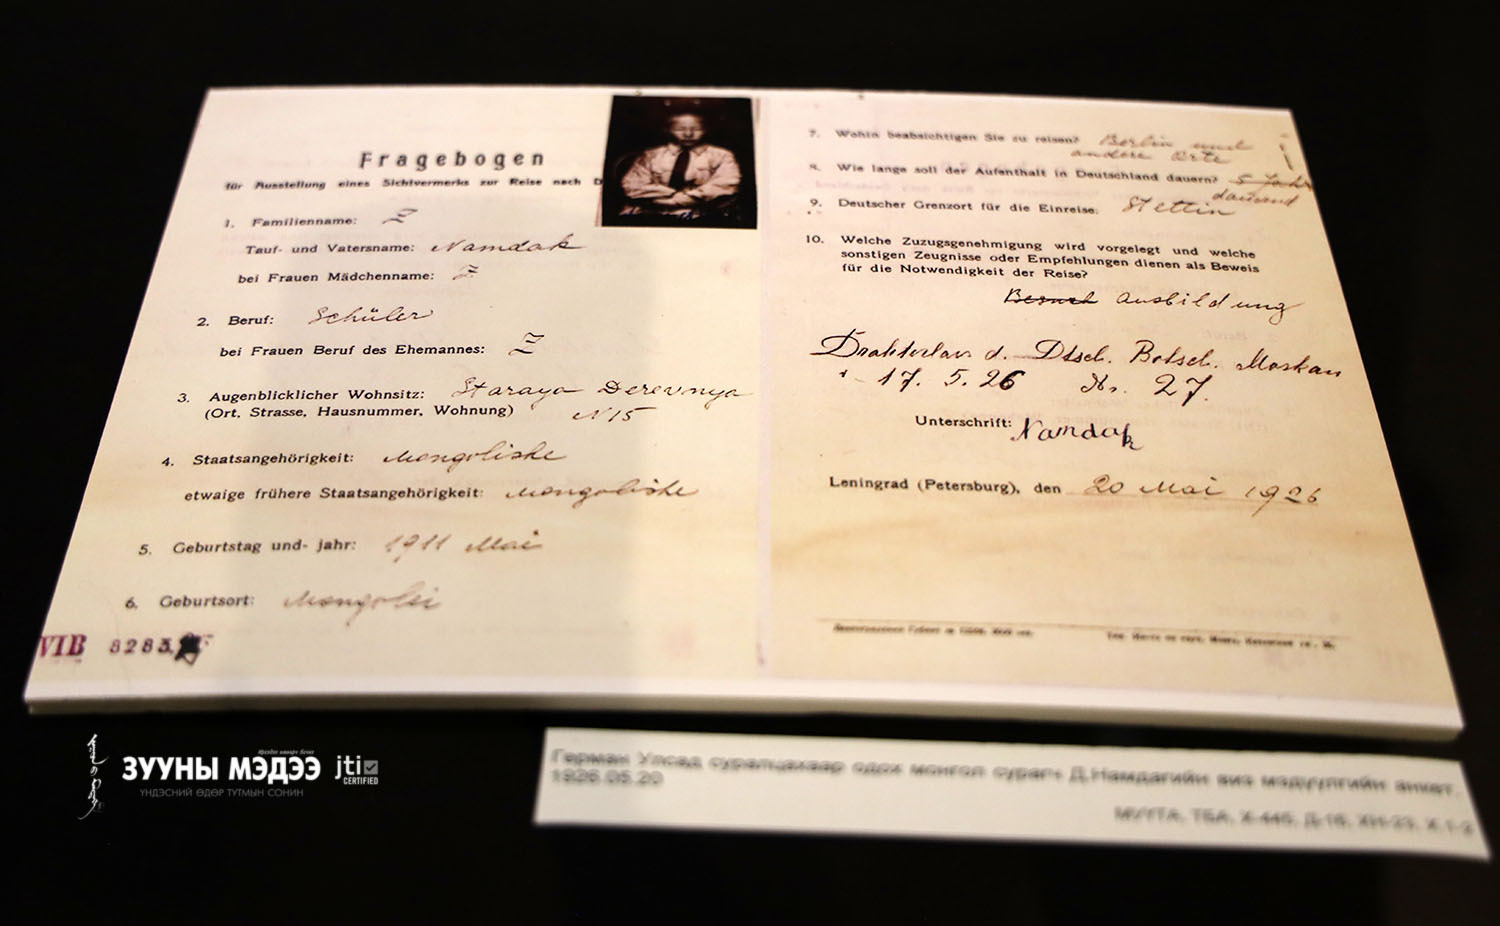 Fragebogen
für Ausstellung eines Sichtvermerks zur Reise nach D
1. Familienname: Z
Tauf- und Vatersname: Namdak
bei Frauen Mädchenname: Z
2. Beruf: Schüler
bei Frauen Beruf des Ehemannes: Z
3. Augenblicklicher Wohnsitz: Staraya Derevnya
(Ort, Strasse, Hausnummer, Wohnung) N 15
4. Staatsangehörigkeit: Mongolishe
etwaige frühere Staatsangehörigkeit: Mongolishe
5. Geburtstag und- jahr: 1911 Mai
6. Geburtsort: Mongolei
VIB 8283
7. Wohin beabsichtigen Sie zu reisen? Berlin und
andere Orte
8. Wie lange soll der Aufenthalt in Deutschland dauern? 5 Jahr
dauernd
9. Deutscher Grenzort für die Einreise: Stettin
10. Welche Zuzugsgenehmigung wird vorgelegt und welche
sonstigen Zeugnisse oder Empfehlungen dienen als Beweis
für die Notwendigkeit der Reise?
Ausbildung
d. Dtsch. Botsch. Moskau
17. 5. 26 Nr. 27.
Unterschrift: Namdak
Leningrad (Petersburg), den 20 Mai 1926
ЗУУНЫ МЭДЭЭ
ҮНДЭСНИЙ ӨДӨР ТУТМЫН СОНИН
jti
CERTIFIED
Герман Улсад суралцахаар одох монгол сурагч Д.Намдагийн виз мэдүүлгийн анкет.
1926.05.20
МУҮТА, ТБА, Х-445, Д-1б, ХН-23, Х.1-2